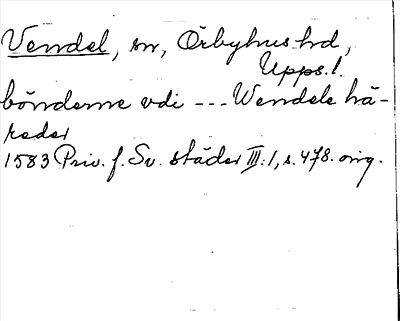 Vendel, sn, Örbyhus hd,
Upps. l.
bönderne vdi --- Wendele hä-
reder
1583 Priv. f. Sv. städer III:1, s. 478. orig.